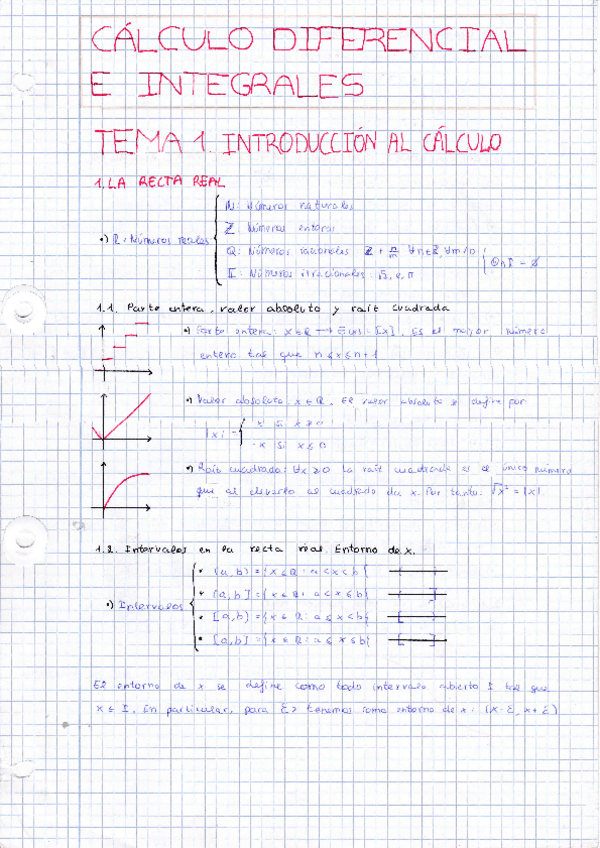 CÁLCULO DIFERENCIAL
E INTEGRALES
TEMA 1. INTRODUCCIÓN AL CÁLCULO
1. LA RECTA REAL
•) R: Números reales
N: Números naturales
Z: Números enteros
Q: Números racionales
I: Números irracionales: √2, e, π
Q∩I = ∅
1.1. Parte entera, valor absoluto y raít cuadrada
•) Parte entera: x∈R → E(x) = [x]. Es el mayor número
entero tas que n≤x≤n+1
•) Valor absoluto x∈R. El valor absoluto se define por
|x| = { x si x≥0
-x si x≤0
•) Raít cuadrada: ∀x≥0 la raít cuadrada es el único número
que al elevarlo al cuadrado da x. Por tanto: √x² = |x|
1.2. Intervalos en la recta real. Entorno de x.
•) Intervalos
• (a,b) = {x∈R: a<x<b}
• (a,b] = {x∈R: a<x≤b}
• [a,b) = {x∈R: a≤x<b}
• [a,b] = {x∈R: a≤x≤b}
El entorno de x se define como todo intervalo abierto I tal que
x∈I. En particular, para ℇ> tenemos como entorno de x: (x-ℇ, x+ℇ)